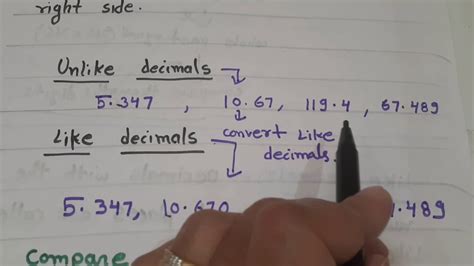 right side.
Unlike decimals
5.347 , 10.67, 119.4 , 67.489
Like decimals convert Like
decimals.
5.347, 10.670 .489
Compare